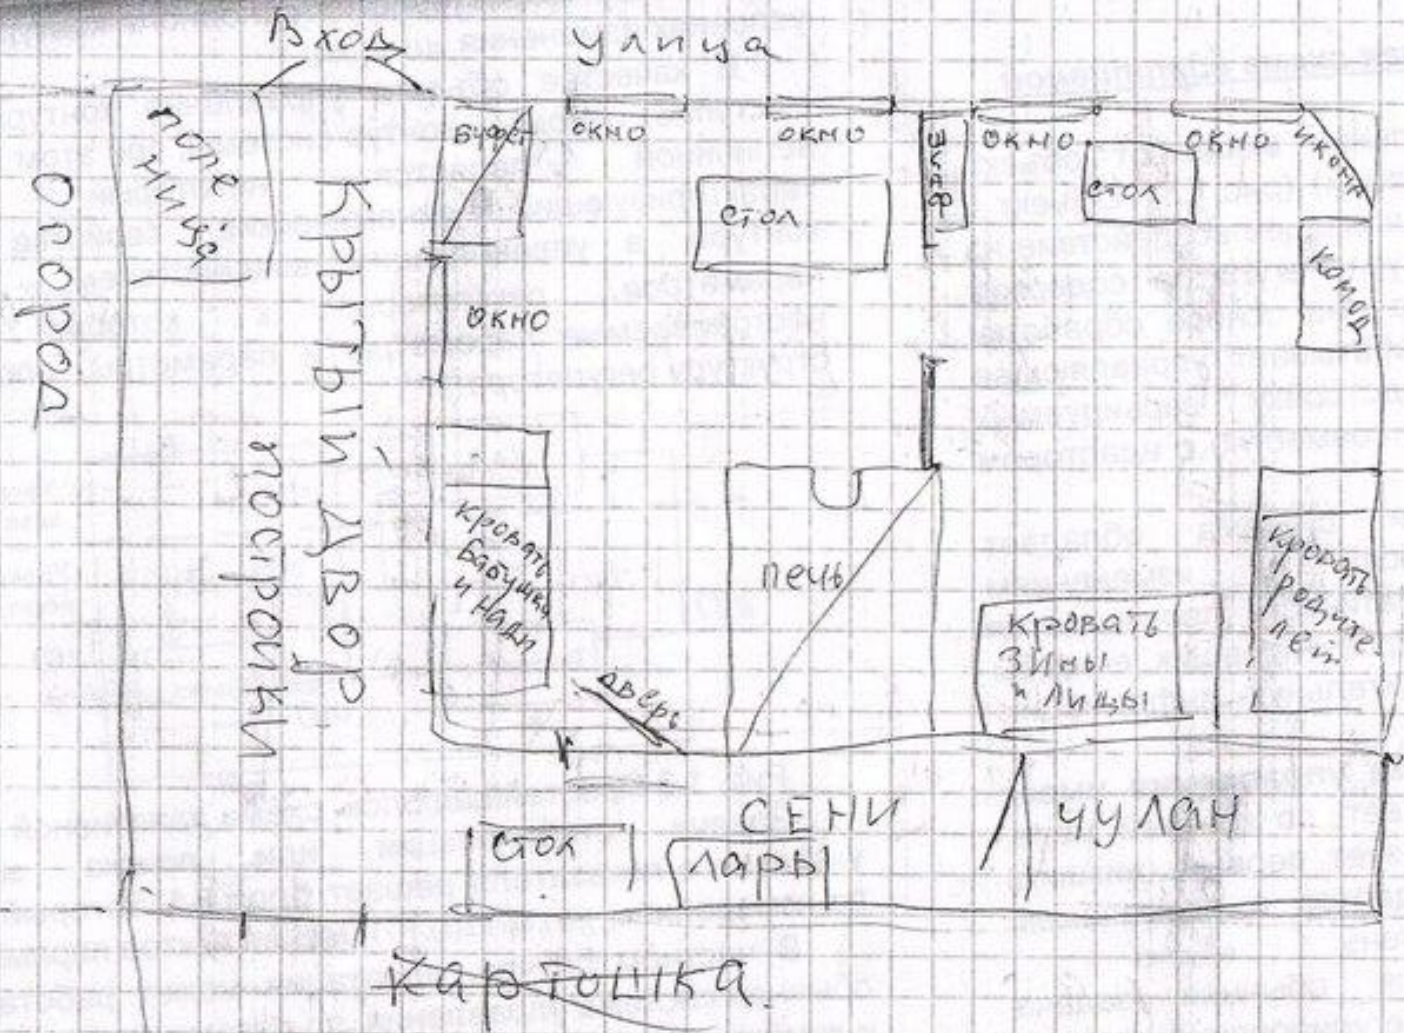 Вход
улица
поле
ница
Огород
Крытый двор
постройки
Буфет
окно
окно
окно
окно
иконы
стол
стол
комод
окно
кровать
бабушки
и Нади
печь
кровать
Зины
и Лиды
кровать
родите-
лей
дверь
СЕНИ
чулан
стол
лары
картошка